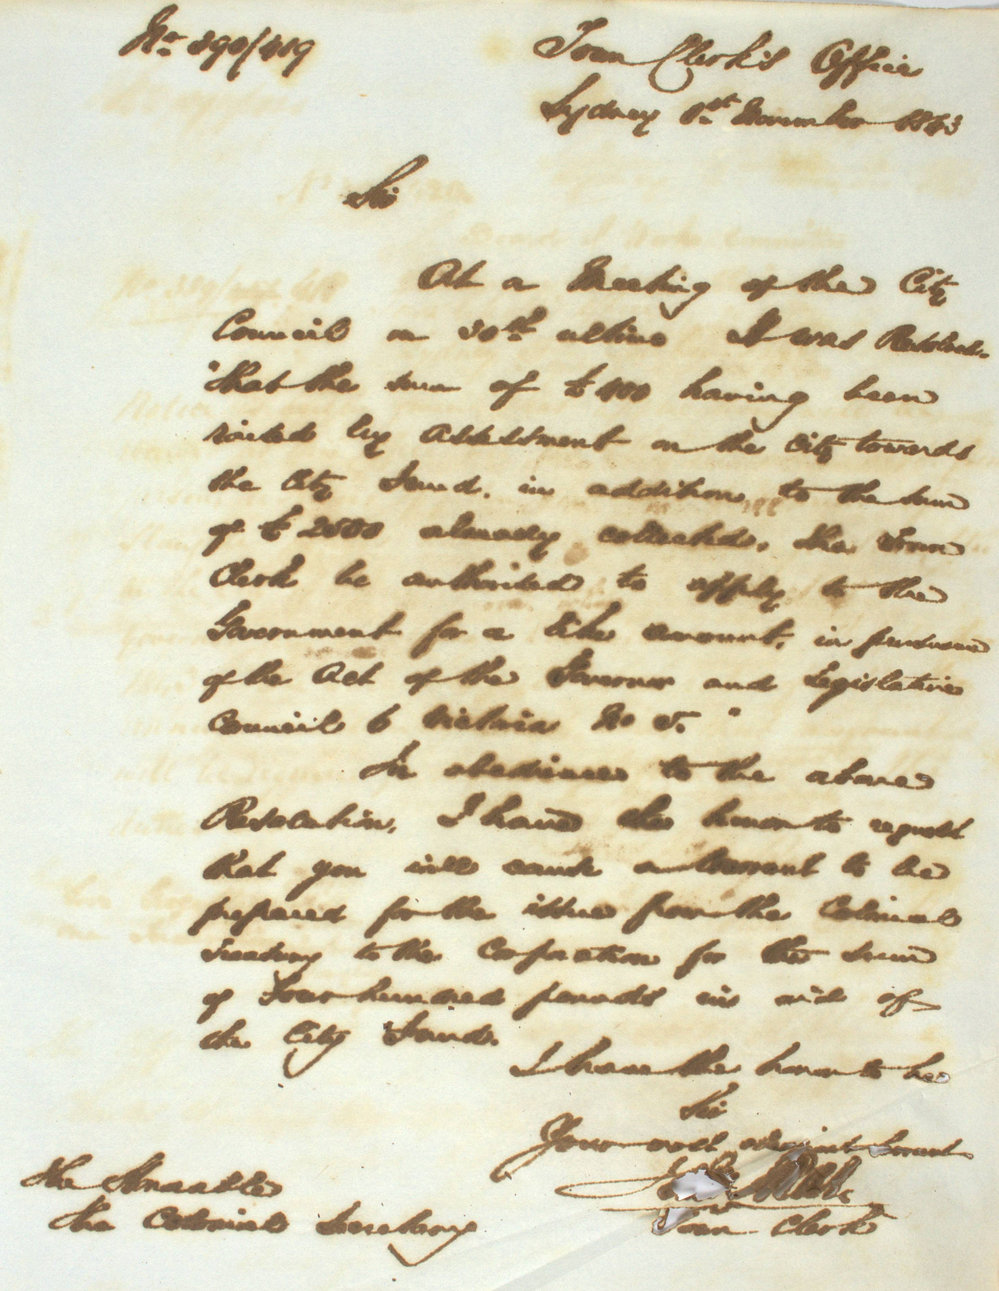 No 390/419
Town Clerk's Office
Sydney 1st November 1843
Sir
At a Meeting of the City
Council on 30th ultimo It was Resolved.
"That the sum of £400 having been
raised by assessment on the City towards
the City Fund, in addition to the sum
of £2500 already collected, the Town
Clerk be authorised to apply to the
Government for a like amount, in pursuance
of the Act of the Governor and Legislative
Council 6 Victoria No 5."
In obedience to the above
Resolution, I have the honor to request
that you will cause a Warrant to be
prepared for the issue from the Colonial
Treasury to the Corporation for the sum
of Four hundred pounds in aid of
the City Fund.
I have the honor to be
Sir
Your most obedient Servant
Town Clerk
The Honorable
The Colonial Secretary